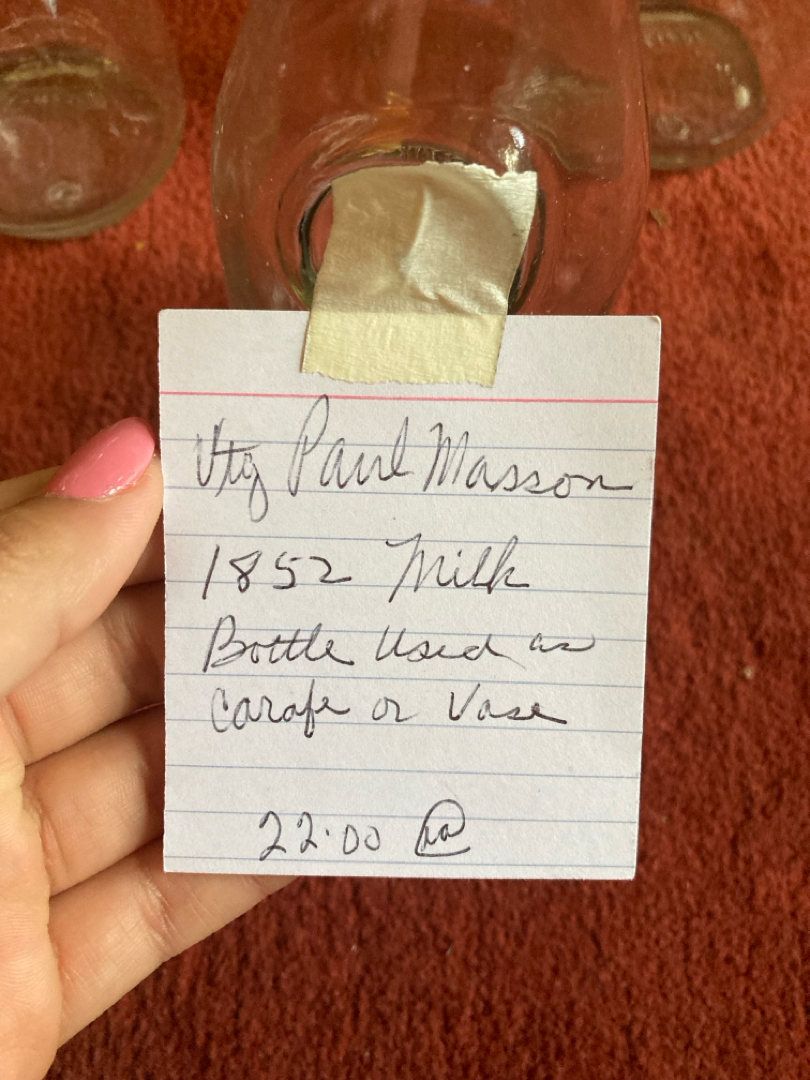 Vtg Paul Masson
1852 Milk
Bottle Used as
Carafe or Vase
22.00 ea